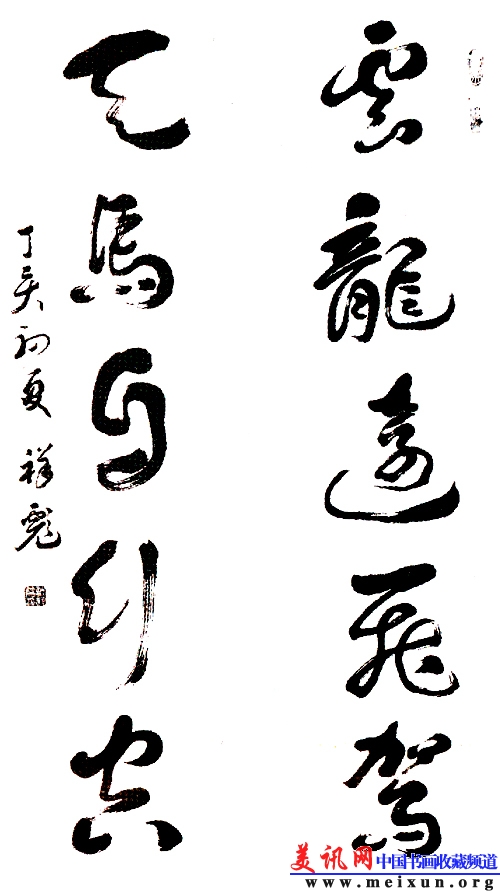 云龍遠飛駕
天馬自行空
丁亥初夏 祥彪
美讯网 中国书画收藏频道
www.meixun.org